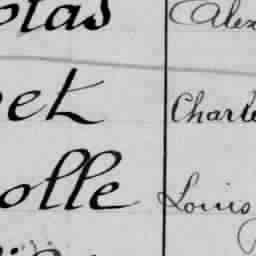 olas Alex
et Charle
olle Louis